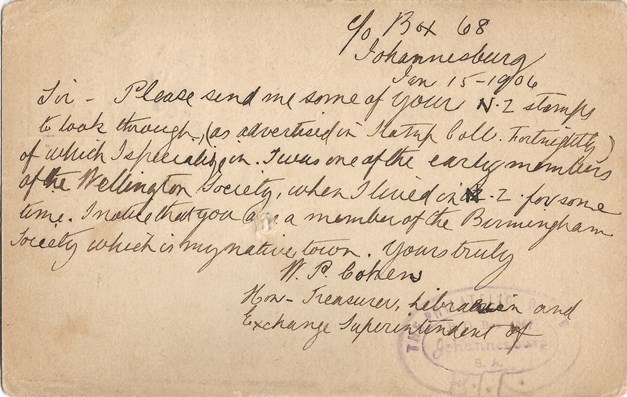 c/o Box 68
Johannesburg
Jan 15-1906
Sir - Please send me some of your N.Z stamps
to look through, (as advertised in Stamp Coll. Fortnightly)
of which I specialize in. I was one of the early members
of the Wellington Society, when I lived in N.Z. for some
time. I notice that you a member of the Birmingham
Society which is my native town. Yours truly
W. P. Cohen
Hon- Treasurer, Librarian and
Exchange Superintendent of
Johannesburg
S. A.